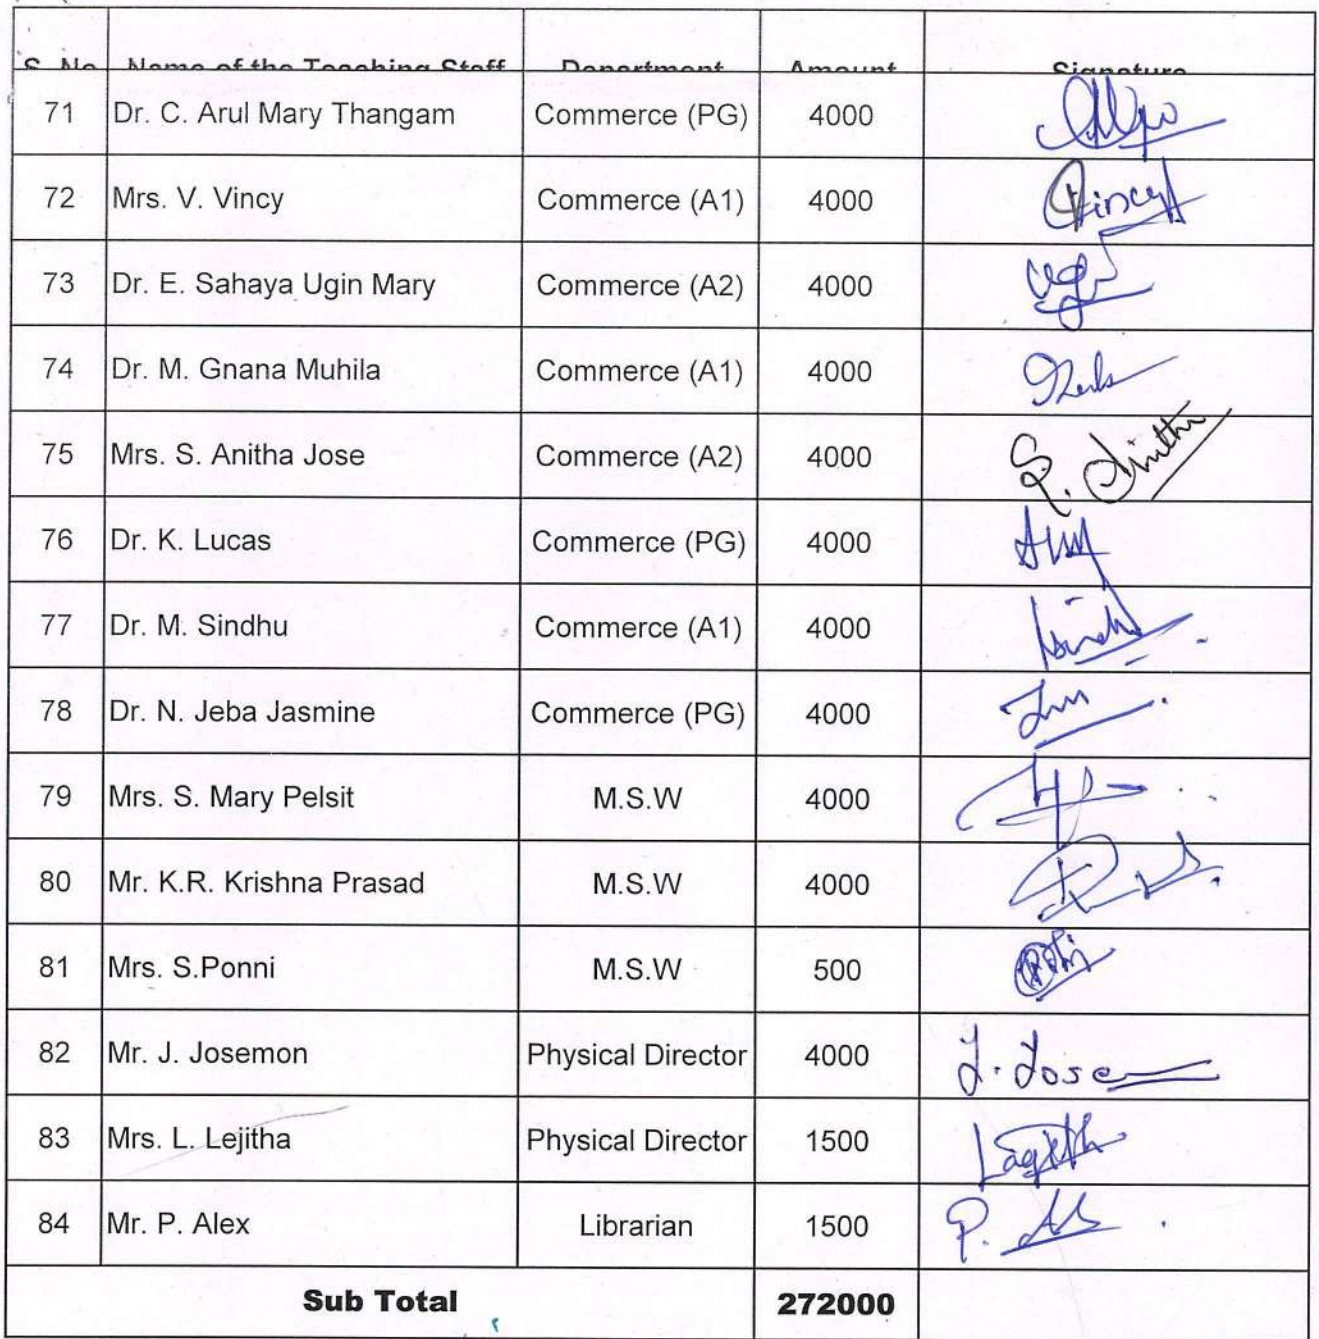 S. No Name of the Teaching Staff Department Amount Signature
71 Dr. C. Arul Mary Thangam Commerce (PG) 4000
72 Mrs. V. Vincy Commerce (A1) 4000 Vincy
73 Dr. E. Sahaya Ugin Mary Commerce (A2) 4000
74 Dr. M. Gnana Muhila Commerce (A1) 4000
75 Mrs. S. Anitha Jose Commerce (A2) 4000 S. Anitha
76 Dr. K. Lucas Commerce (PG) 4000
77 Dr. M. Sindhu Commerce (A1) 4000
78 Dr. N. Jeba Jasmine Commerce (PG) 4000
79 Mrs. S. Mary Pelsit M.S.W 4000
80 Mr. K.R. Krishna Prasad M.S.W 4000
81 Mrs. S.Ponni M.S.W 500
82 Mr. J. Josemon Physical Director 4000 J. Jose
83 Mrs. L. Lejitha Physical Director 1500
84 Mr. P. Alex Librarian 1500 P.
Sub Total 272000